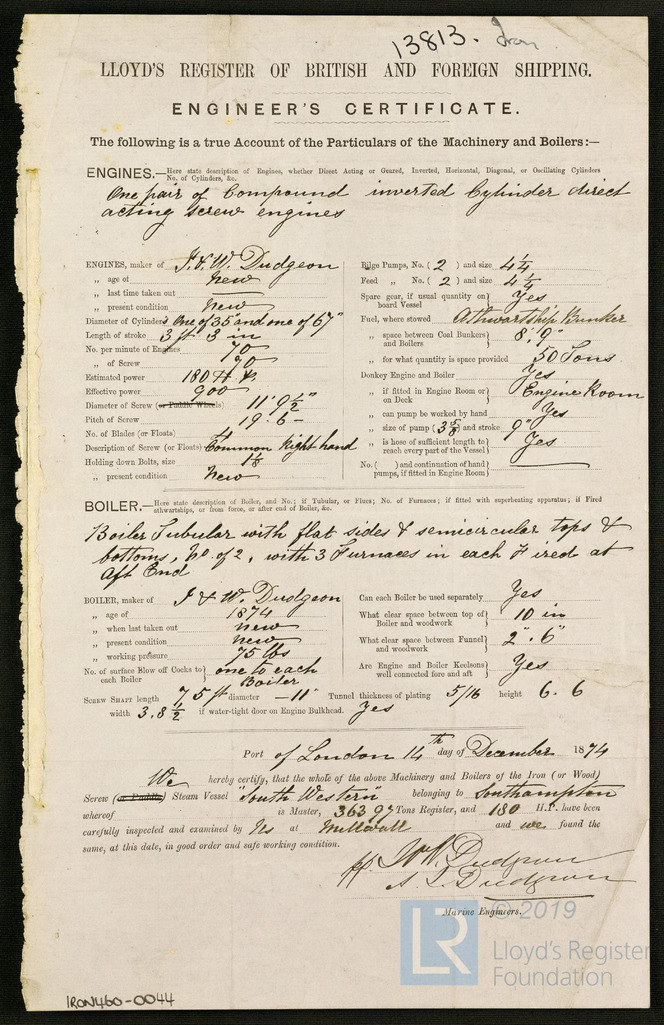 13813. Iron
LLOYD'S REGISTER OF BRITISH AND FOREIGN SHIPPING.
ENGINEER'S CERTIFICATE.
The following is a true Account of the Particulars of the Machinery and Boilers:—
ENGINES.—Here state description of Engines, whether Direct Acting or Geared, Inverted, Horizontal, Diagonal, or Oscillating Cylinders
No. of Cylinders, &c.
One pair of Compound inverted Cylinder direct
acting screw engines
ENGINES, maker of J. & W. Dudgeon
„ age of new
„ last time taken out
„ present condition New
Diameter of Cylinders One of 35" and one of 67"
Length of stroke 3 ft 3 in
No. per minute of Engines 70
„ of Screw 70
Estimated power 180 H.P.
Effective power 900
Diameter of Screw (or Paddle Wheels) 11' 9½"
Pitch of Screw 19. 6 -
No. of Blades (or Floats) 4
Description of Screw (or Floats) Common Right hand
Holding down Bolts, size 1⅛
„ present condition New
Bilge Pumps, No. ( 2 ) and size 4¼
Feed „ No. ( 2 ) and size 4¼
Spare gear, if usual quantity on board Vessel } Yes
Fuel, where stowed Athwartship Bunker
„ space between Coal Bunkers and Boilers } 8'. 9"
„ for what quantity is space provided 50 Tons
Donkey Engine and Boiler Yes
„ if fitted in Engine Room or on Deck } Engine Room
„ can pump be worked by hand Yes
„ size of pump (3⅝) and stroke 9"
„ is hose of sufficient length to reach every part of the Vessel } Yes
No. ( ) and continuation of hand pumps, if fitted in Engine Room }
BOILER.—Here state description of Boiler, and No.; if Tubular, or Flues; No. of Furnaces; if fitted with superheating apparatus; if Fired
athwartships, or from force, or after end of Boiler, &c.
Boiler Tubular with flat sides & semicircular tops &
bottoms, No. of 2, with 3 Furnaces in each Fired at
Aft End
BOILER, maker of J & W. Dudgeon
„ age of 1874
„ when last taken out new
„ present condition new
„ working pressure 75 lbs
No. of surface Blow off Cocks to each Boiler } one to each Boiler
Can each Boiler be used separately Yes
What clear space between top of Boiler and woodwork } 10 in
What clear space between Funnel and woodwork } 2". 6"
Are Engine and Boiler Keelsons well connected fore and aft } Yes
SCREW SHAFT length 75 ft diameter - 11" Tunnel thickness of plating 5/16 height 6. 6
width 3.8½ if water-tight door on Engine Bulkhead. Yes
Port of London 14th day of December 1874
We hereby certify, that the whole of the above Machinery and Boilers of the Iron (or Wood)
Screw (or Paddle) Steam Vessel "South Western" belonging to Southampton
whereof is Master, 363 97 Tons Register, and 180 H.P. have been
carefully inspected and examined by Us at Millwall and we found the
same, at this date, in good order and safe working condition.
J. & W. Dudgeon
Dudgeon
Marine Engineers.
LR
© 2019
Lloyd's Register
Foundation
IRON460-0044